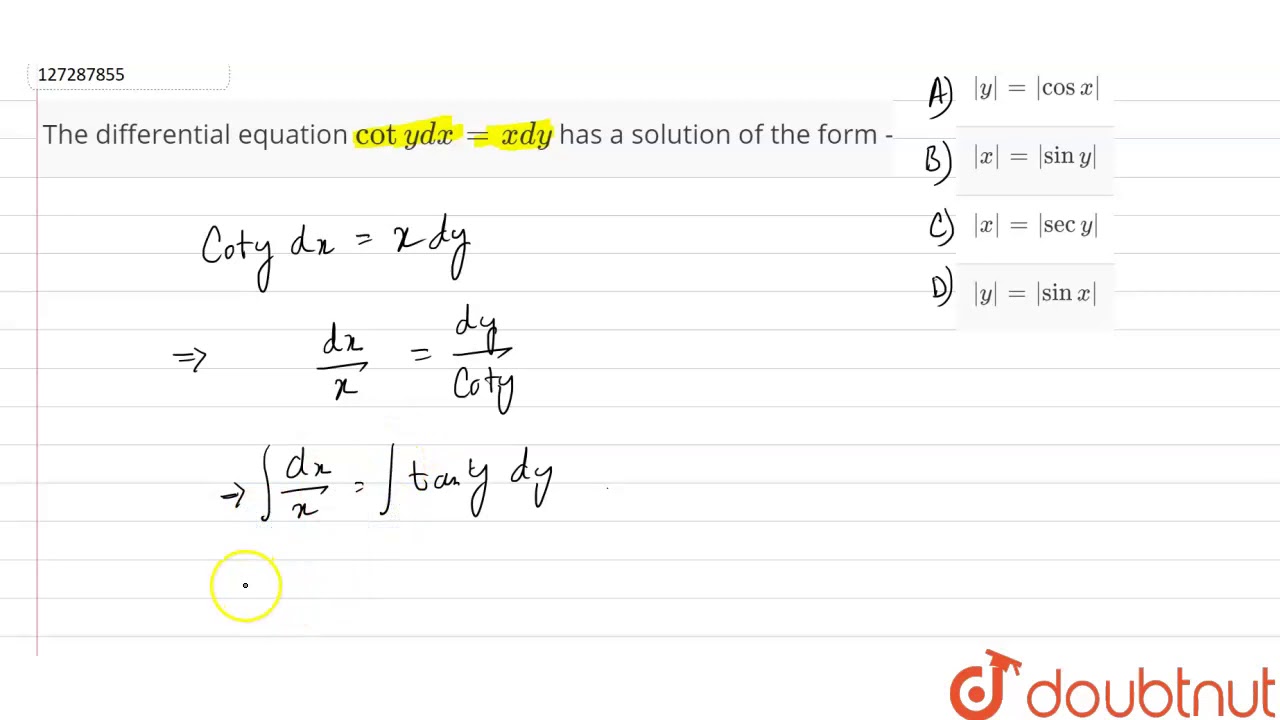 127287855
The differential equation cot ydx = xdy has a solution of the form -
A) |y| = |cos x|
B) |x| = |sin y|
C) |x| = |sec y|
D) |y| = |sin x|
Coty dx = x dy
⇒ dx/x = dy/Coty
⇒ ∫ dx/x = ∫ tany dy
doubtnut